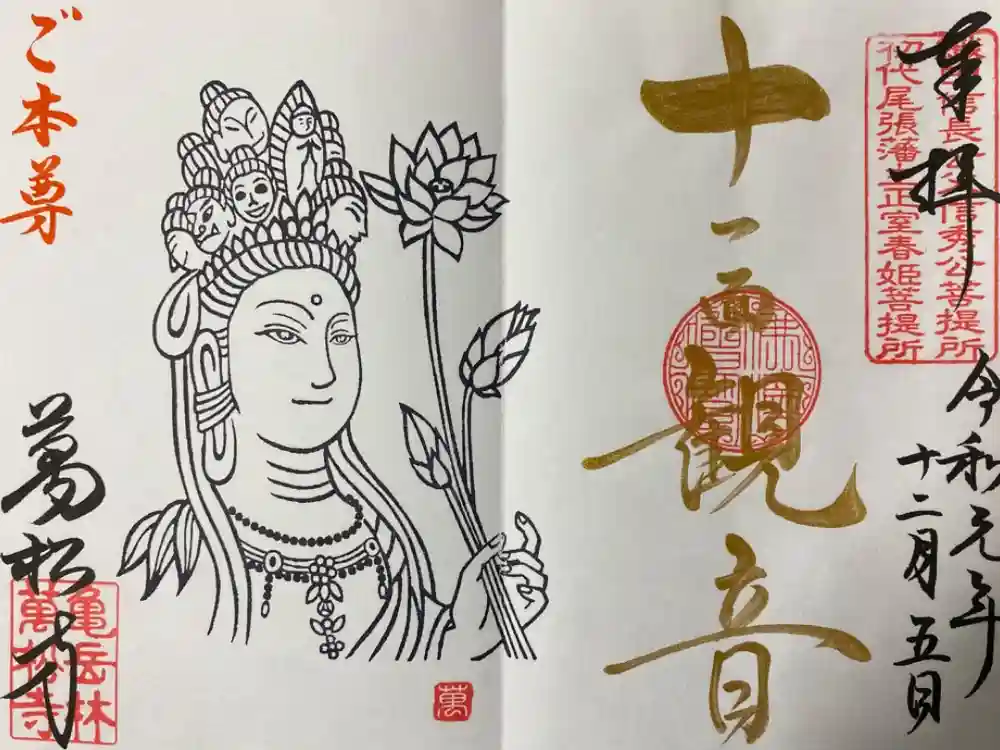 奉拝
織田信長公父信秀公菩提所
初代尾張藩主正室春姫菩提所
令和元年
十二月五日
十一面観音
ご本尊
萬松寺
亀岳林
萬松寺
萬